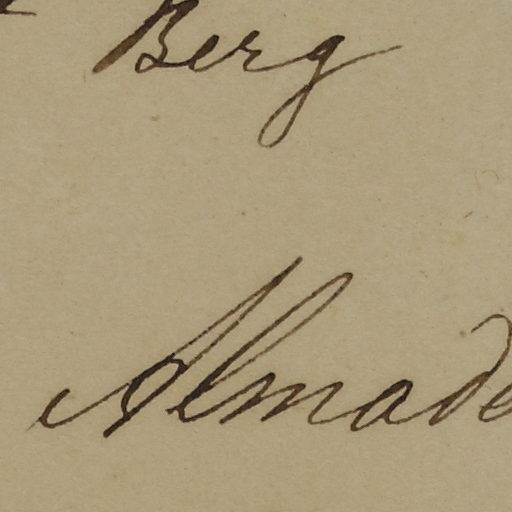 Berg
Almade